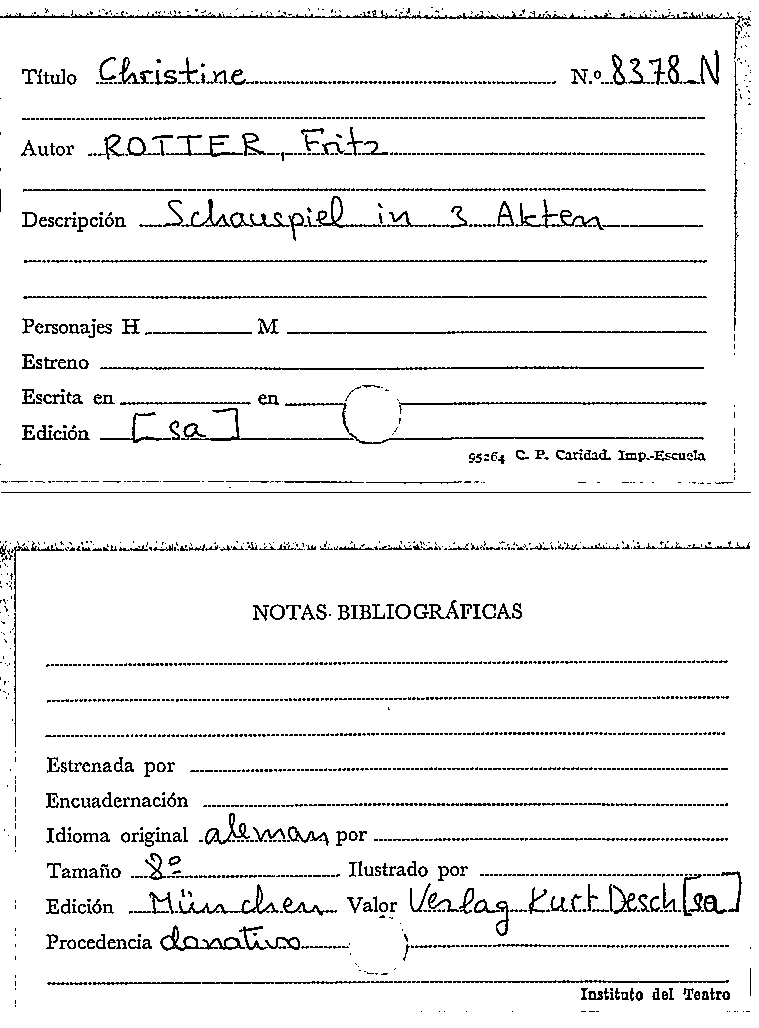 Título Christine N.º 8378-N
Autor ROTTER, Fritz
Descripción Schauspiel in 3 Akten
Personajes H M
Estreno
Escrita en en
Edición [sa]
95264 C. P. Caridad. Imp.-Escuela
NOTAS BIBLIOGRÁFICAS
Estrenada por
Encuadernación
Idioma original aleman por
Tamaño 8º Ilustrado por
Edición München Valor Verlag Kurt Desch [sa]
Procedencia donativo
Instituto del Teatro